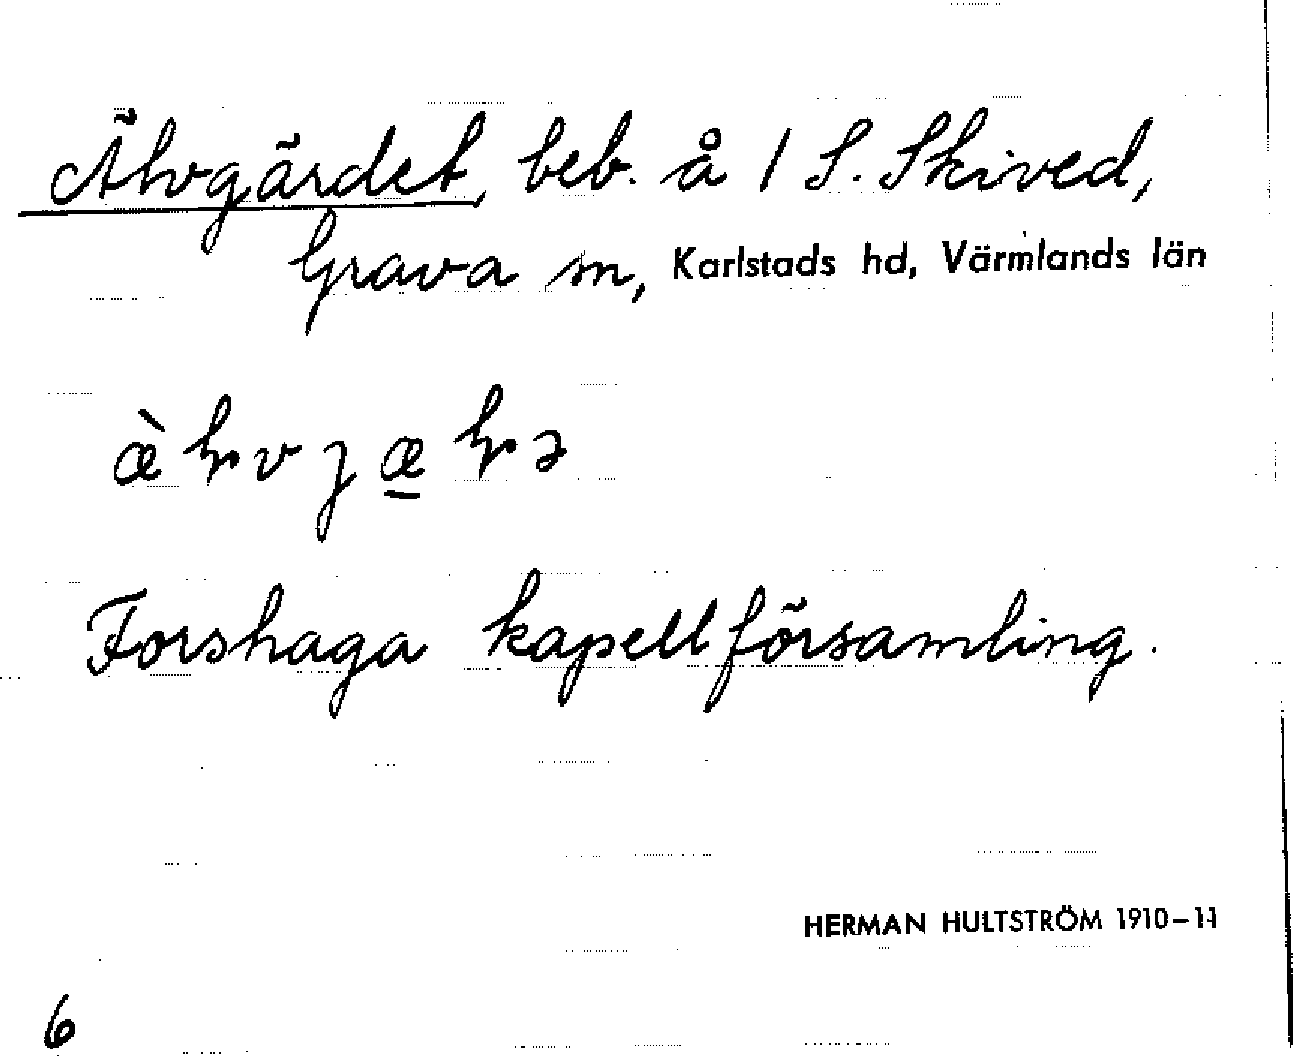 Älvgärdet, beb. å 1 S. Skived,
Grava sn, Karlstads hd, Värmlands län
Forshaga kapellförsamling.
HERMAN HULTSTRÖM 1910–11
6